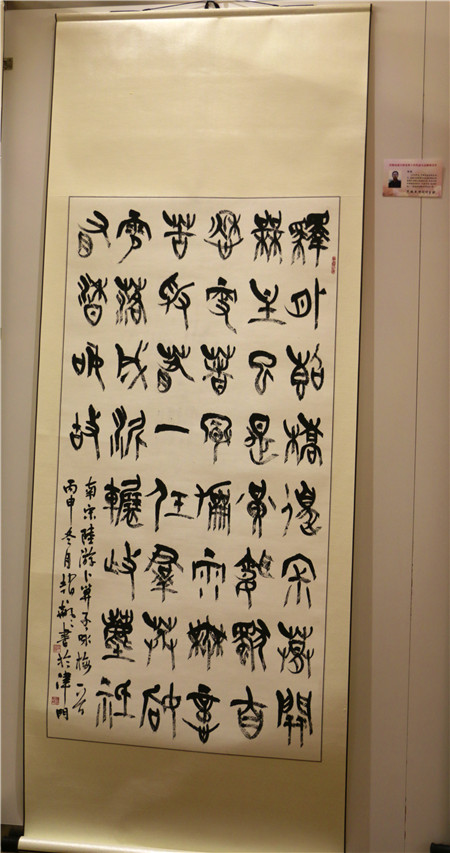 驛外斷橋邊寂寞開
無主已是黃昏獨自
愁更著風和雨無意
苦爭春一任群芳妒
零落成泥碾作塵祇
有香如故
南宋陸游卜算子咏梅一首
丙申冬月書於津門